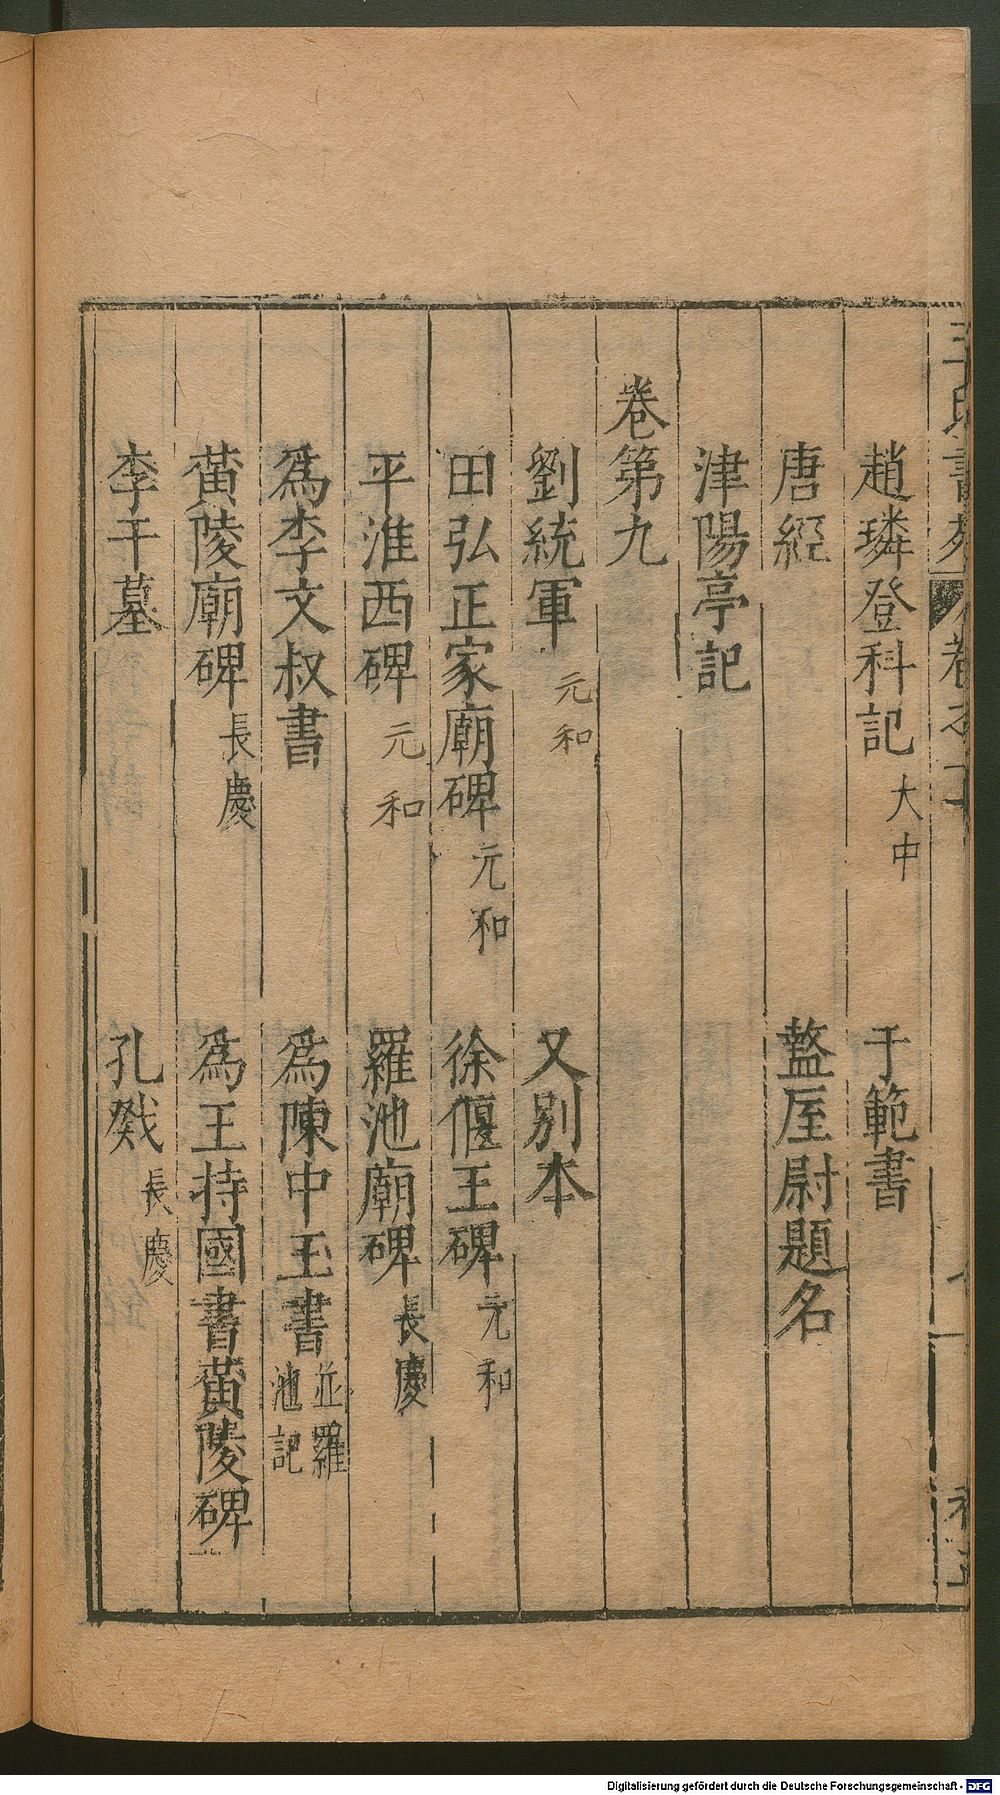 趙璘登科記 大中 于範書
唐經 盩厔尉題名
津陽亭記
卷第九
劉統軍 元和 又別本
田弘正家廟碑 元和 徐偃王碑 元和
平淮西碑 元和 羅池廟碑 長慶
爲李文叔書 爲陳中玉書 並羅池記
黄陵廟碑 長慶 爲王持國書黄陵碑
李干墓 孔戣 長慶
Digitalisierung gefördert durch die Deutsche Forschungsgemeinschaft - DFG